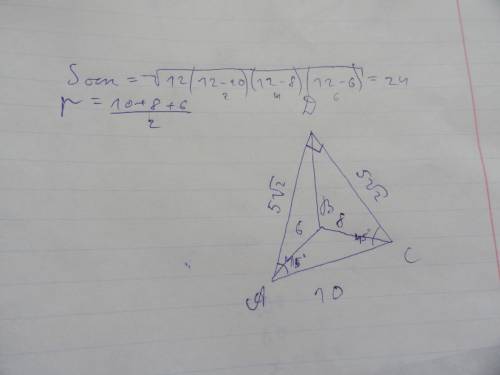 Sосн = √12(12-10)(12-8)(12-6) = 24
2 4 6
p = 10+8+6
2
D
5√2
5√2
B
6
8
45°
45°
C
A
10